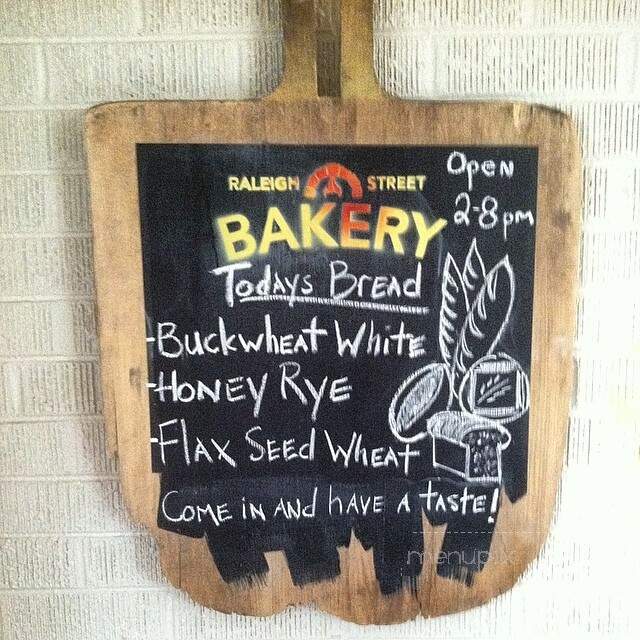 RALEIGH STREET
BAKERY
Open
2-8pm
Todays Bread
-Buckwheat White
-Honey Rye
-Flax Seed Wheat
Come in and have a taste!
menupix